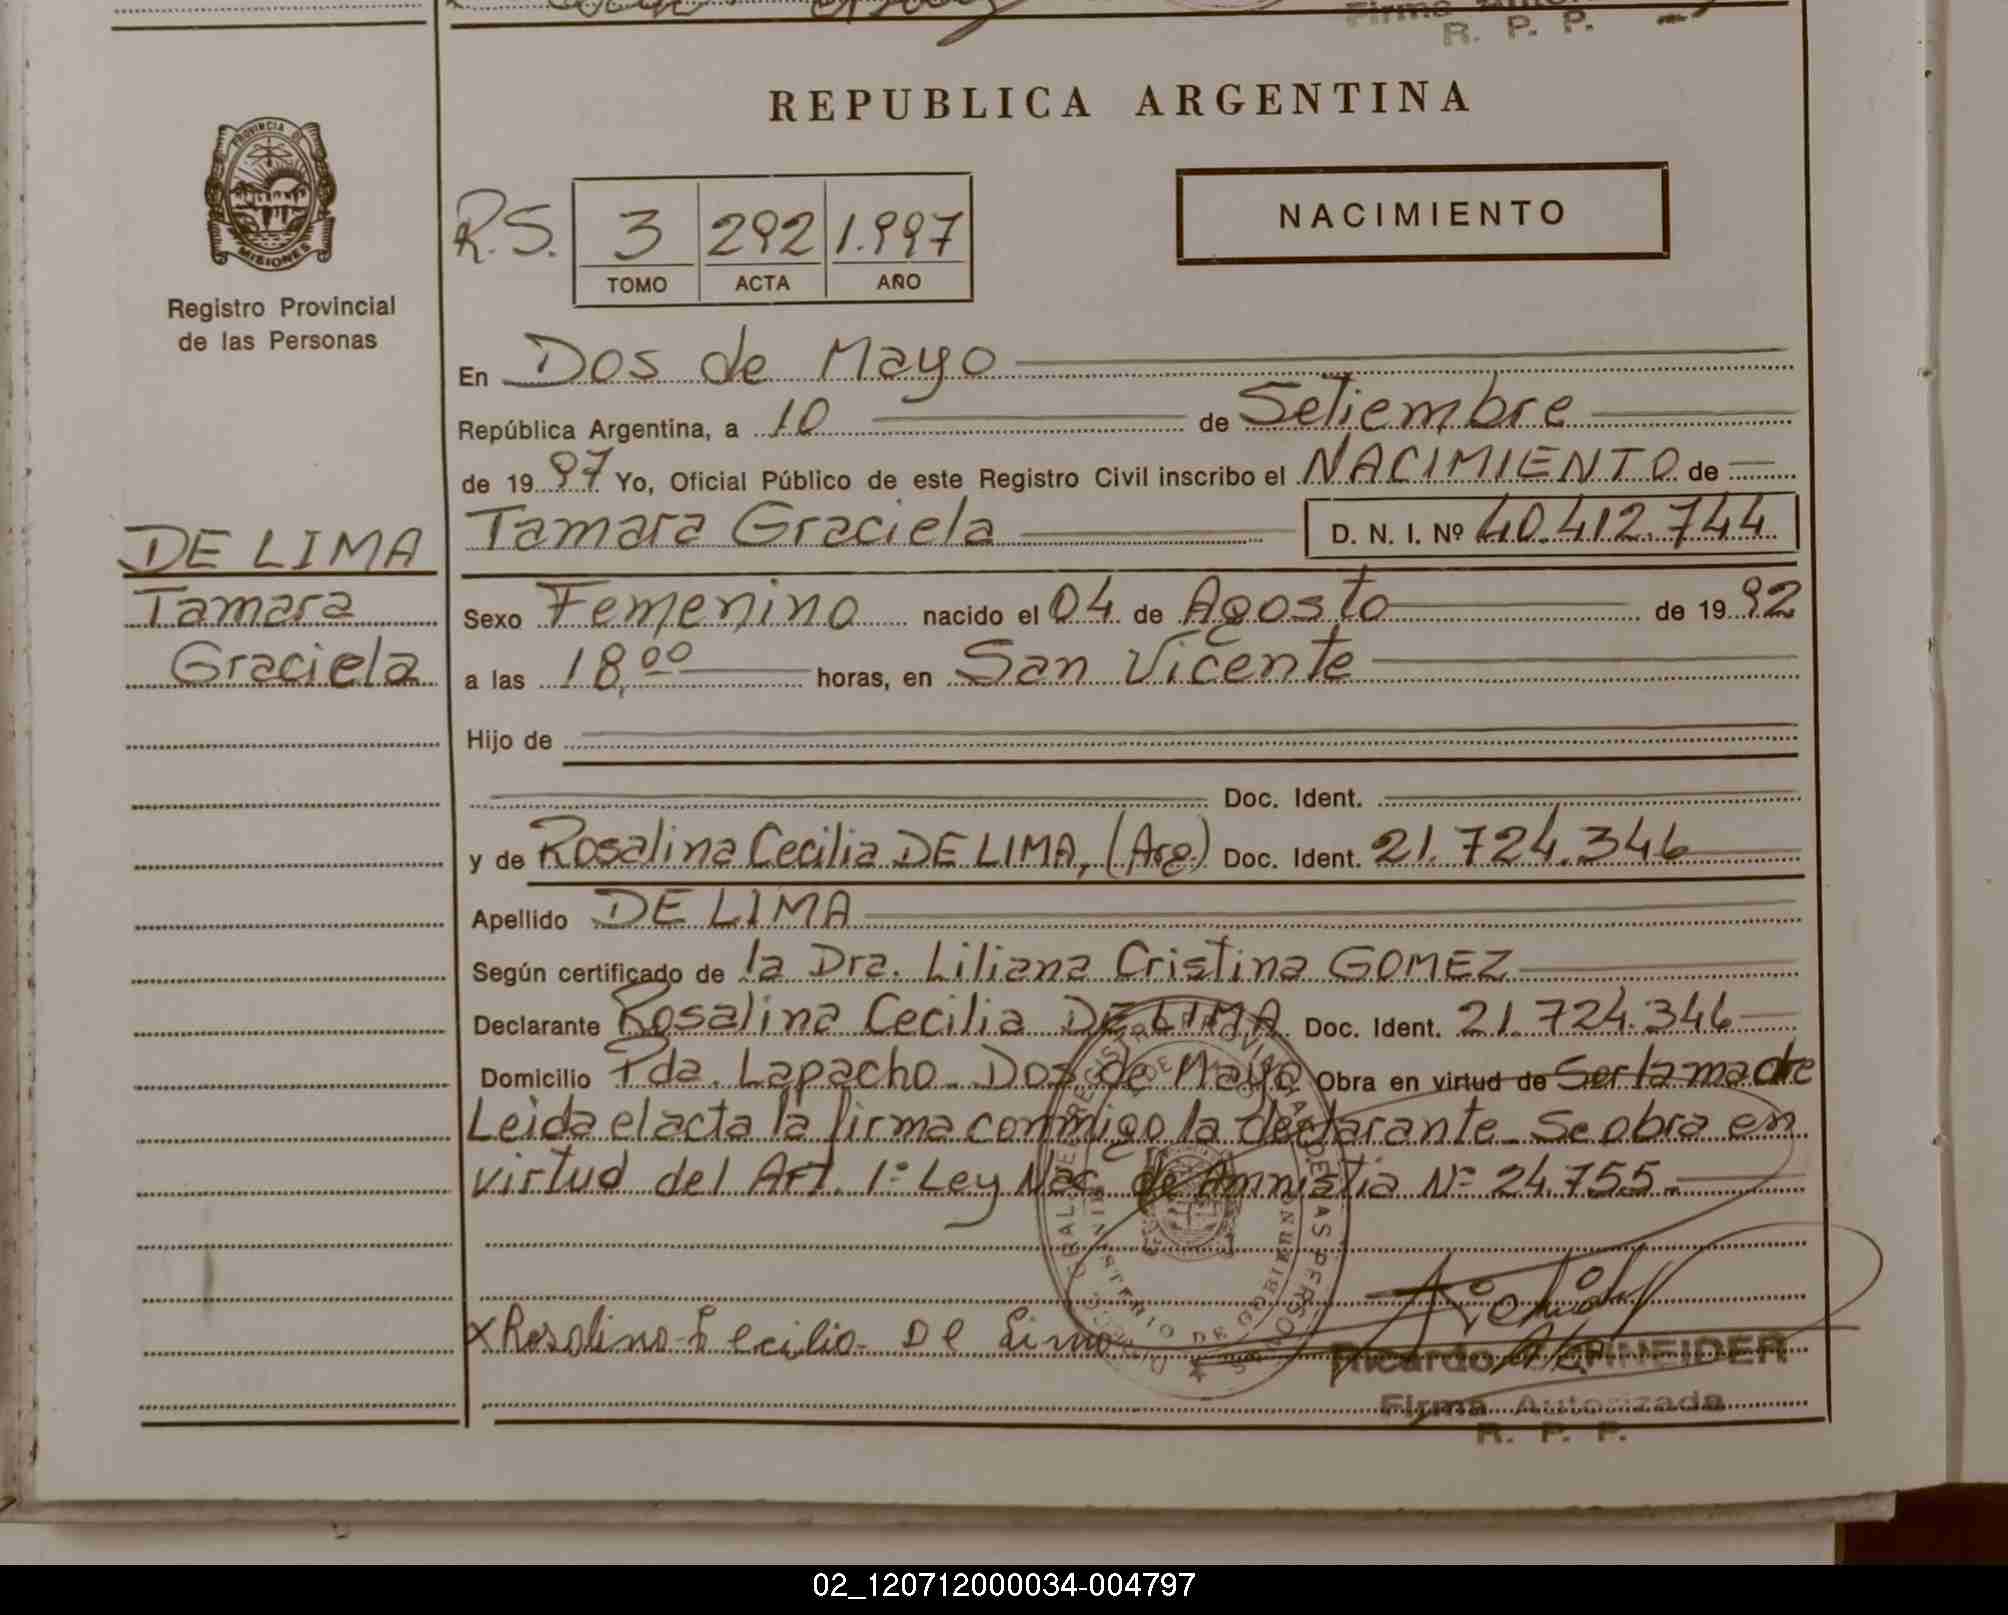 R. P. P.
REPUBLICA ARGENTINA
PROVINCIA DE
MISIONES
Registro Provincial
de las Personas
R.S. 3 292 1.997
TOMO ACTA AÑO
NACIMIENTO
En Dos de Mayo
República Argentina, a 10 de Setiembre
de 19 97 Yo, Oficial Público de este Registro Civil inscribo el NACIMIENTO de
Tamara Graciela D. N. I. Nº 40.412.744
DE LIMA
Tamara
Graciela
Sexo Femenino nacido el 04 de Agosto de 19 92
a las 18,00 horas, en San Vicente
Hijo de
Doc. Ident.
y de Rosalina Cecilia DE LIMA, (Arg.) Doc. Ident. 21.724.346
Apellido DE LIMA
Según certificado de la Dra. Liliana Cristina GOMEZ
Declarante Rosalina Cecilia DE LIMA Doc. Ident. 21.724.346
Domicilio Pda. Lapacho - Dos de Mayo Obra en virtud de Ser la madre
Leida el acta la firma conmigo la declarante - Se obra en
virtud del Art. 1º Ley Nac. de Amnistia Nº 24.755 -
x Rosalina Cecilia De Lima
Ricardo SCHNEIDER
Firma Autorizada
R. P. P.
02_120712000034-004797